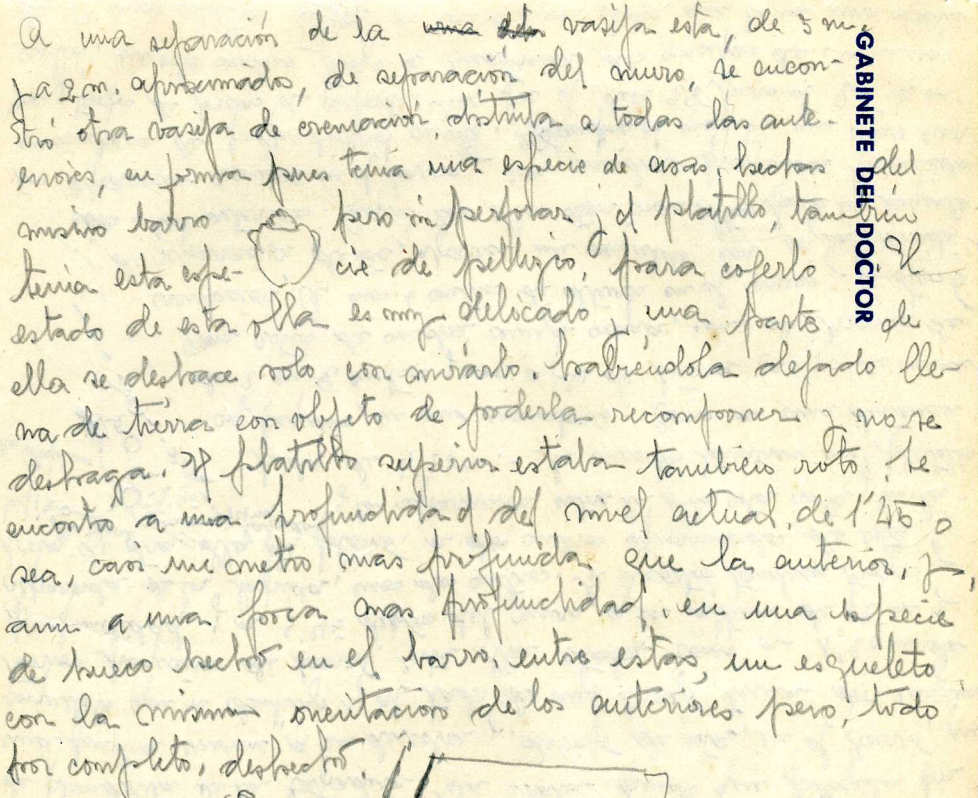 A una separación de la urna vasija esta, de 5 m.
y a 2 m. aproximados, de separación del muro, se encon-
tró otra vasija de cremación distinta a todas las ante-
riores, en forma pues tenia una especie de asas, hechas del
mismo barro pero sin perforar y el platillo, también
tenia esta espe- cie de pellizco, para cogerlo El
estado de esta olla es muy delicado y una parte de
ella se deshace solo con mirarlo. habiéndola dejado lle-
na de tierra con objeto de poderla recomponer y no se
deshaga. El platillo superior estaba tambien roto. Se
encontró a una profundidad del nivel actual, de 1'45 o
sea, casi un metro mas profunda que la anterior, y,
aun a una poca mas profundidad en una especie
de hueco hecho en el barro, entre estas, un esqueleto
con la misma orientacion de los anteriores pero, todo
por completo, deshecho.
GABINETE DEL DOCTOR